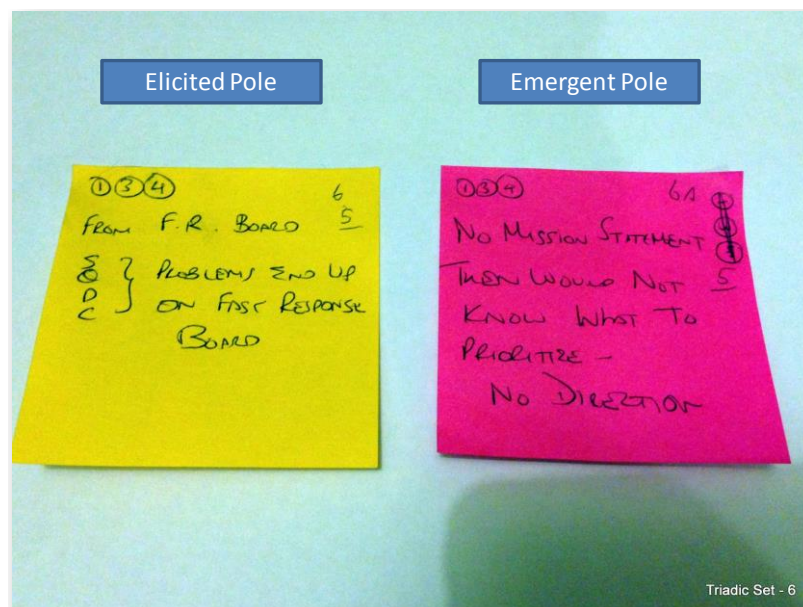 Elicited Pole
Emergent Pole
1 3 4
6
5
FROM F.R. BOARD
S Q D C } PROBLEMS END UP
ON FAST RESPONSE
BOARD
1 3 4
6A
5
NO MISSION STATEMENT
THEN WOULD NOT
KNOW WHAT TO
PRIORITIZE -
NO DIRECTION
Triadic Set - 6